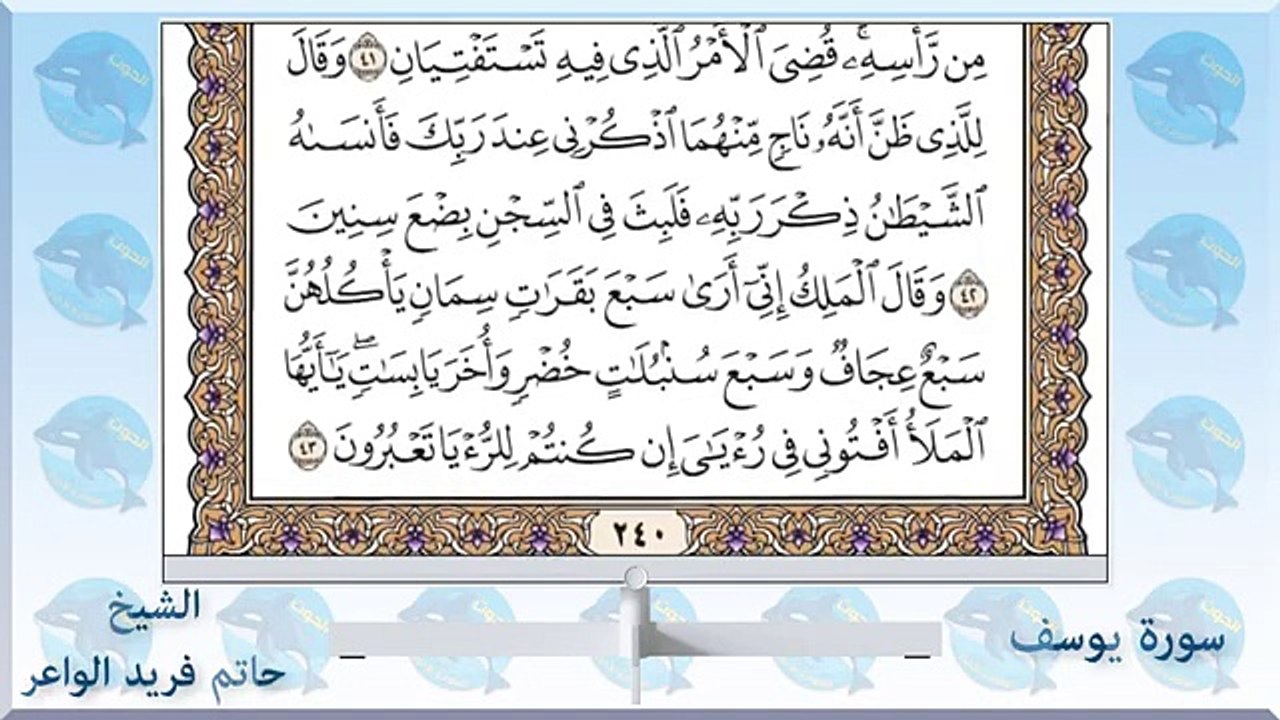 مِن رَّأْسِهِۦۚ قُضِىَ ٱلْأَمْرُ ٱلَّذِى فِيهِ تَسْتَفْتِيَانِ ٤١ وَقَالَ
لِلَّذِى ظَنَّ أَنَّهُۥ نَاجٍ مِّنْهُمَا ٱذْكُرْنِى عِندَ رَبِّكَ فَأَنسَىٰهُ
ٱلشَّيْطَٰنُ ذِكْرَ رَبِّهِۦ فَلَبِثَ فِى ٱلسِّجْنِ بِضْعَ سِنِينَ
٤٢ وَقَالَ ٱلْمَلِكُ إِنِّىٓ أَرَىٰ سَبْعَ بَقَرَٰتٍ سِمَانٍ يَأْكُلُهُنَّ
سَبْعٌ عِجَافٌ وَسَبْعَ سُنۢبُلَٰتٍ خُضْرٍ وَأُخَرَ يَابِسَٰتٍۖ يَٰٓأَيُّهَا
ٱلْمَلَأُ أَفْتُونِى فِى رُءْيَٰىَ إِن كُنتُمْ لِلرُّءْيَا تَعْبُرُونَ ٤٣
٢٤٠
سورة يوسف
الشيخ
حاتم فريد الواعر
الحوت